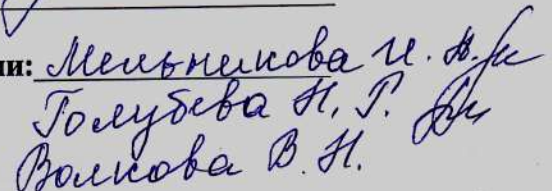 ии: Мельникова И. Н.
Голубева Н. Г.
Волкова В. Н.